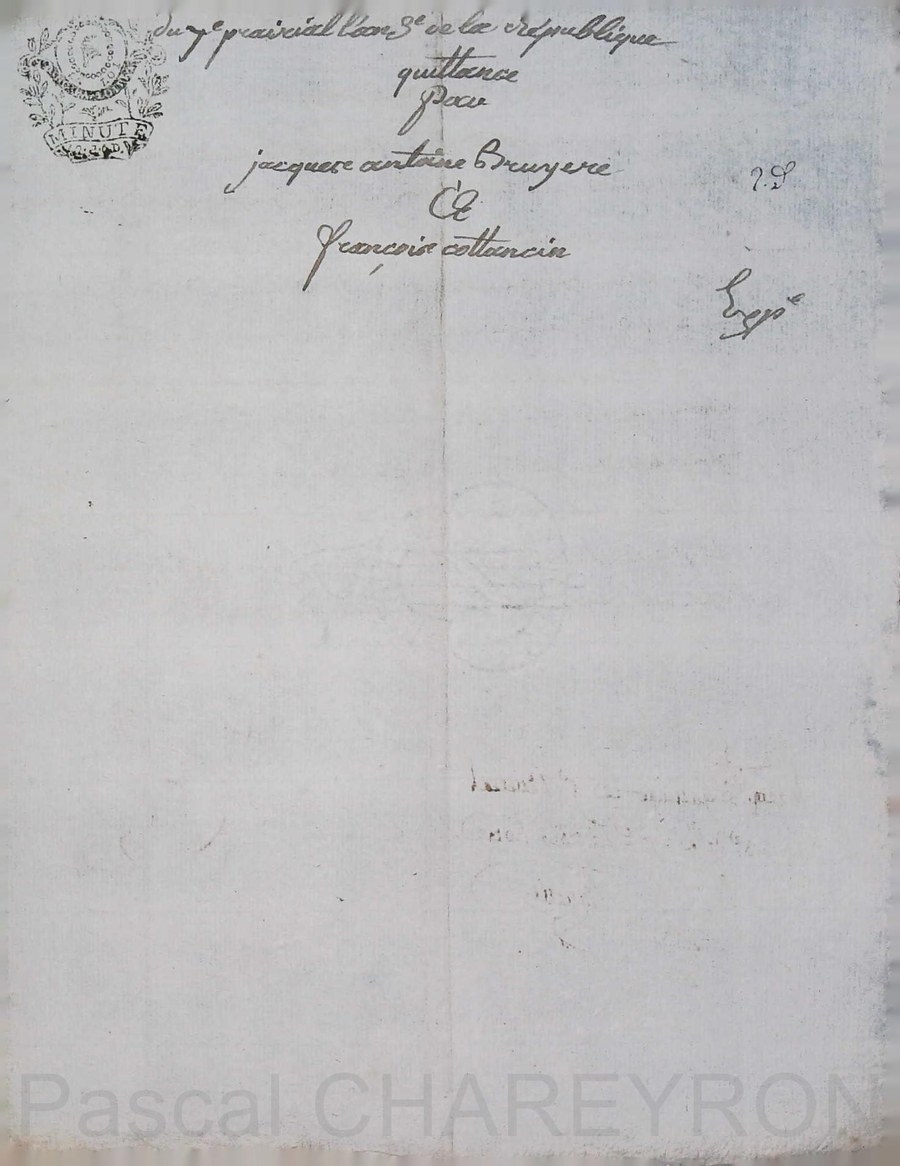 du 7e prairial l'an 3e de la Republique
quittance
Pour
jacques antoine Bruyere
Et
françois cottancin
Expé
MINUTE
Pascal CHAREYRON